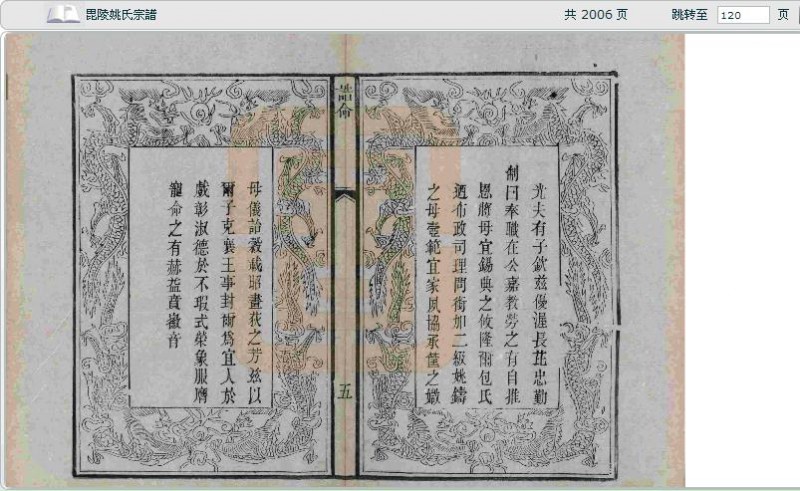 毘陵姚氏宗譜 共 2006 页 跳转至 120 页
光夫有子欽兹優渥長茈忠勤
制曰奉職在公嘉教勞之有自推
恩將母宜錫典之攸隆爾包氏
迺布政司理問銜加二級姚鑄
之母壼範宜家夙協承筐之媺
誥命
五
母儀詒穀載昭畫荻之芳兹以
爾子克襄王事封爾爲宜人於
戲彰淑德於不瑕式榮象服膺
寵命之有赫益賁徽音